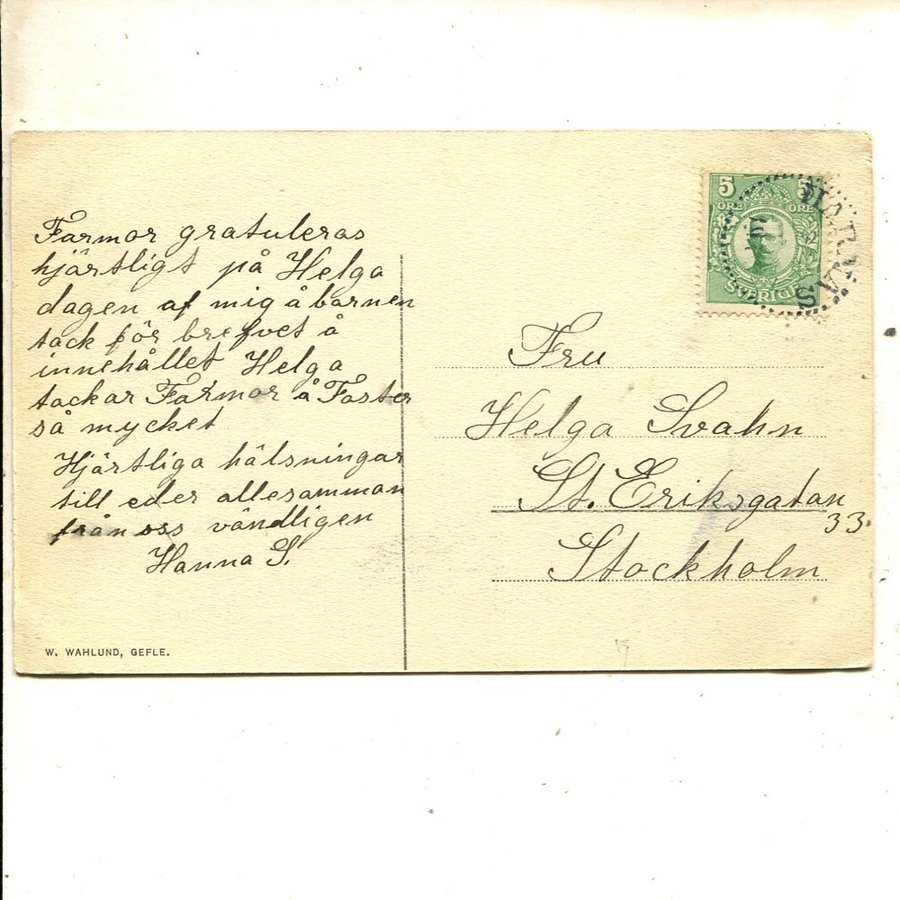 Farmor gratuleras
hjärtligt på Helga
dagen af mig å barnen
tack för brefvet å
innehållet Helga
tackar Farmor å Faster
så mycket
Hjärtliga hälsningar
till eder allesamman
från oss vändligen
Hanna S.
W. WAHLUND, GEFLE.
5 5
ÖRE ÖRE
SVERIGE
Fru
Helga Svahn
St. Eriksgatan
33.
Stockholm